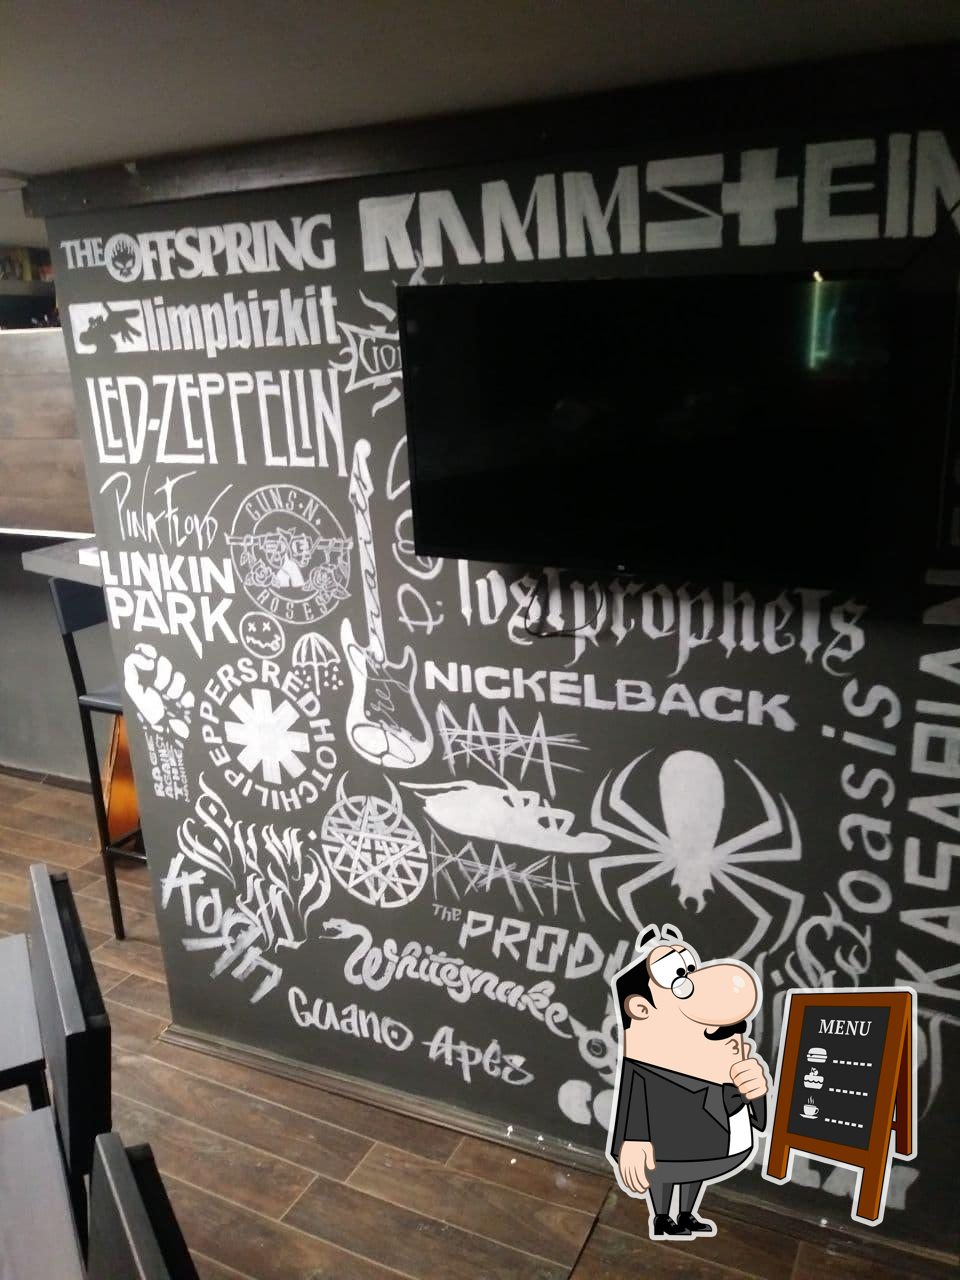 RAMMSTEIN
THE OFFSPRING
limpbizkit
LED-ZEPPELIN
PINK FLOYD
GUNS·N·
ROSES
LINKIN
PARK
lostprophets
NICKELBACK
PAPA
ROACH
RED HOT CHILI PEPPERS
RAGE
AGAINST
THE
MACHINE
oasis
KASABIAN
KoЯn
The PRODI
Whitesnake
GUANO APES
MENU